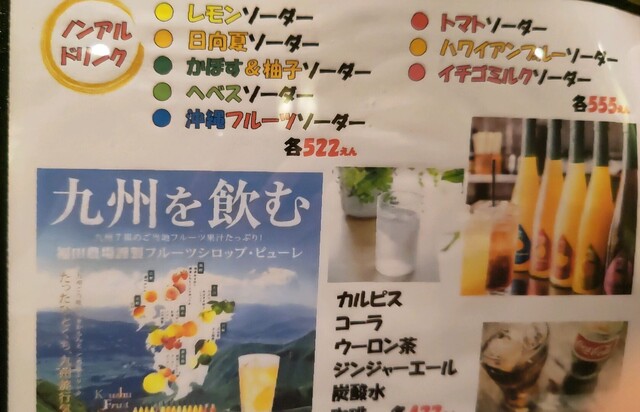 ノンアル
ドリンク
レモンソーダー
日向夏ソーダー
かぼす&柚子ソーダー
ヘベスソーダー
沖縄フルーツソーダー
各522えん
トマトソーダー
ハワイアンブルーソーダー
イチゴミルクソーダー
各555えん
九州を飲む
九州7県のご当地フルーツ果汁たっぷり!
フルーツシロップ・ピューレ
カルピス
コーラ
ウーロン茶
ジンジャーエール
炭酸水
各
Fruit